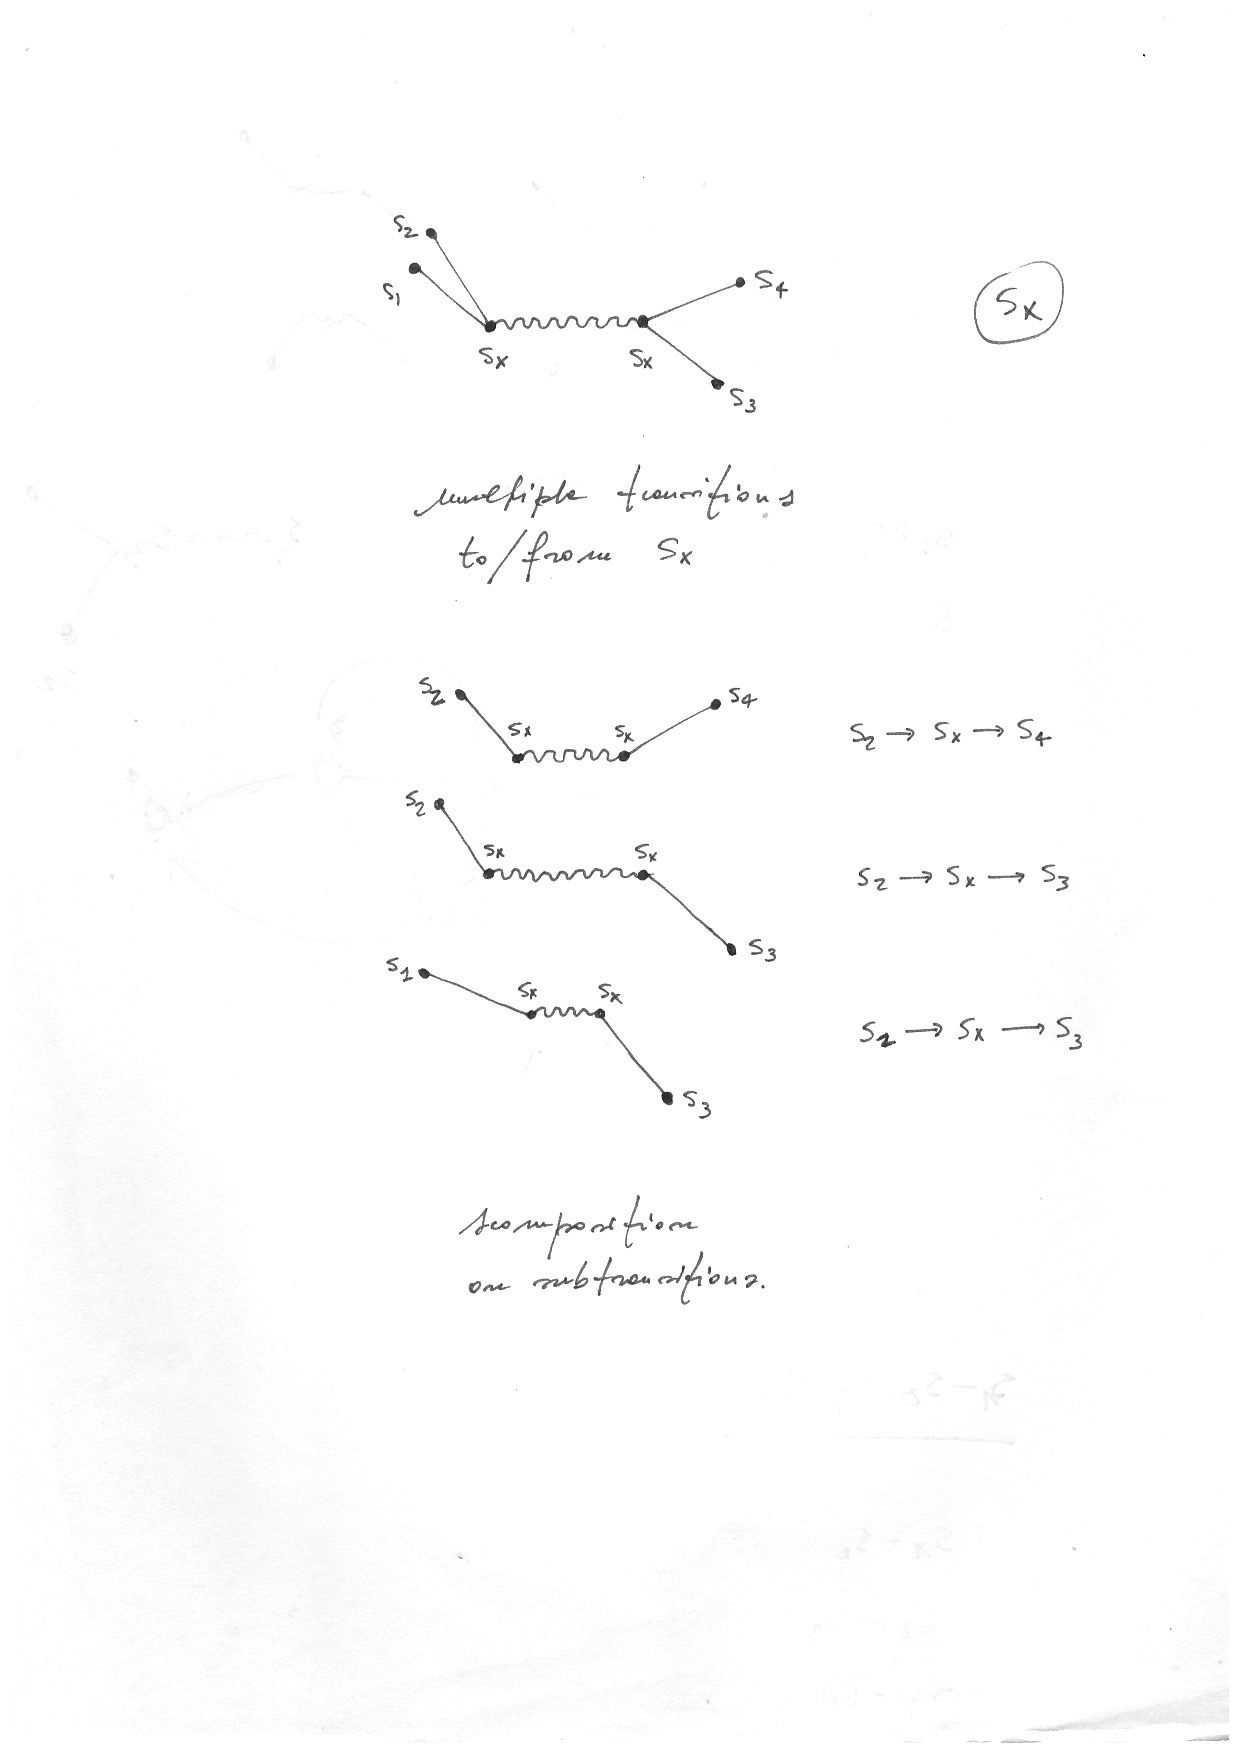 S2
S1
S4
Sx
Sx
Sx
S3
multiple transitions
to/from Sx
S2
Sx
Sx
S4
S2 → Sx → S4
S2
Sx
Sx
S2 → Sx → S3
S3
S1
Sx
Sx
S2 → Sx → S3
S3
scomposition
on subtransitions.